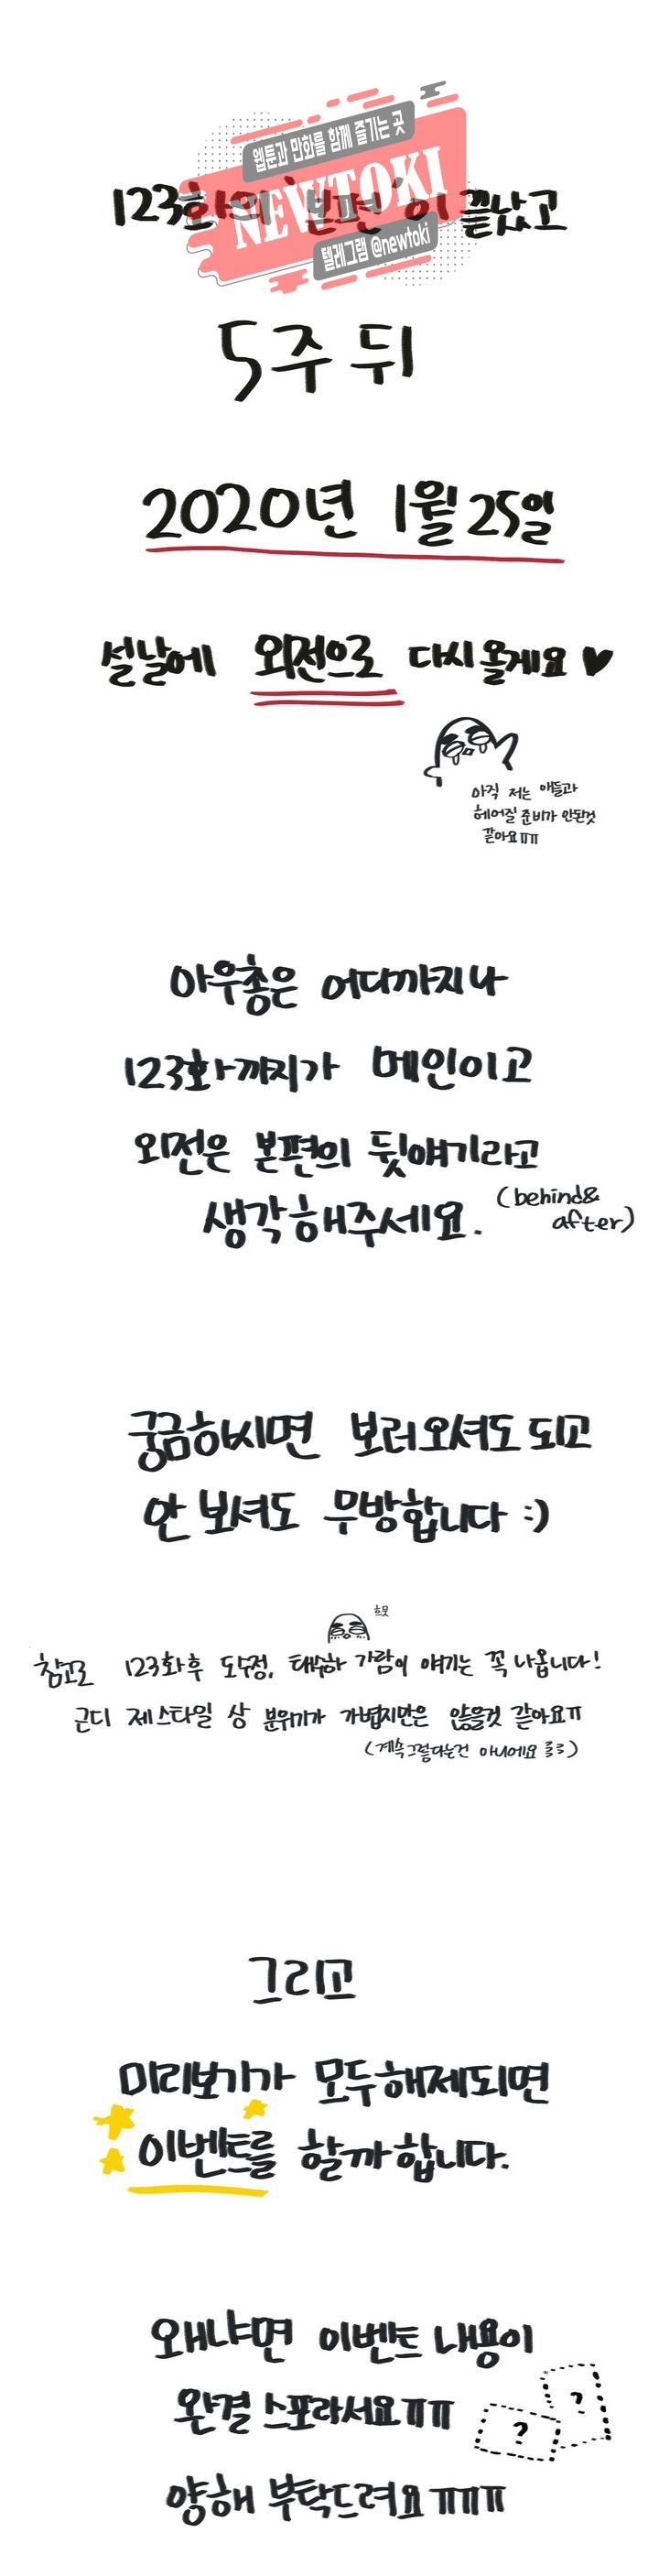 웹툰과 만화를 함께 즐기는 곳
NEWTOKI
텔레그램 @newtoki
123화의 '본편'이 끝났고
5주 뒤
2020년 1월 25일
설날에 외전으로 다시 올게요 ♥
아직 저는 애들과
헤어질 준비가 안된것
같아요ㅠㅠ
아우총은 어디까지나
123화까지가 메인이고
외전은 본편의 뒷얘기라고
생각해주세요.
(behind&
after)
궁금하시면 보러오셔도 되고
안 보셔도 무방합니다 :)
흐뭇
참고로 123화 후 도수정, 태수하 가람이 얘기는 꼭 나옵니다!
근디 제 스타일 상 분위기가 가볍지만은 않을것 같아요ㅠ
(계속 그렇다는건 아니에요 ㄹㄹ)
그리고
미리보기가 모두 해제되면
이벤트를 할까 합니다.
왜냐면 이벤트 내용이
완결 스포라서요ㅠㅠ
? ?
양해 부탁드려요 ㅠㅠㅠ